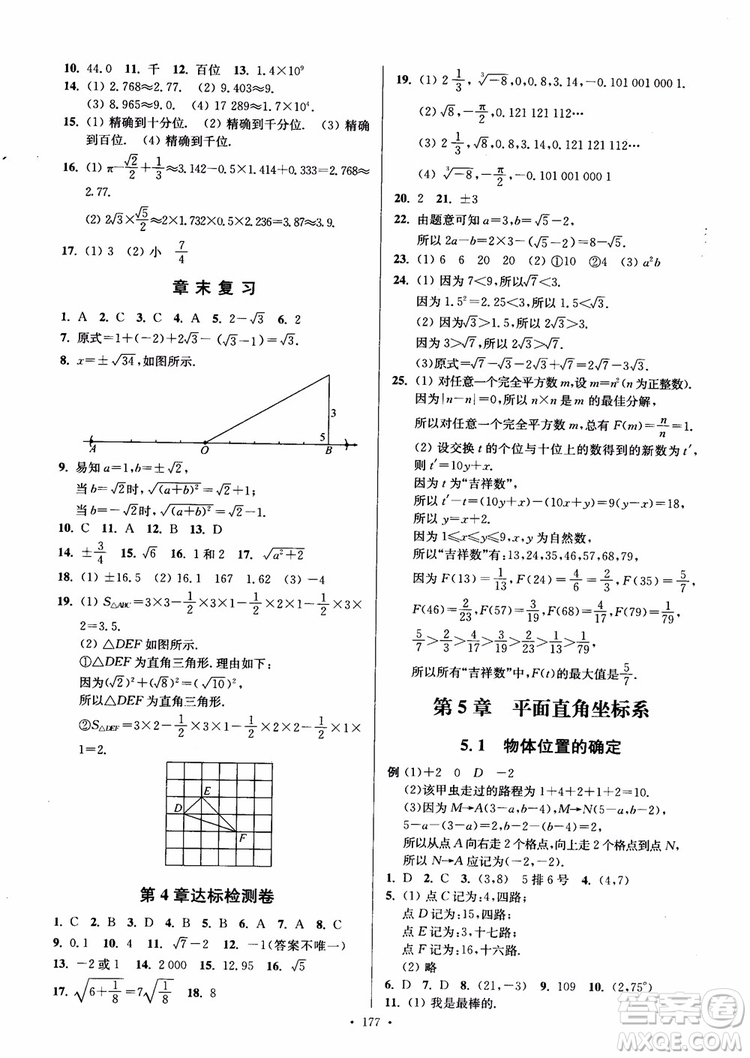 10. 44.0  11. 千  12. 百位  13. 1.4×10⁹
14. (1) 2.768≈2.77.  (2) 9.403≈9.
(3) 8.965≈9.0.  (4) 17 289≈1.7×10⁴.
15. (1) 精确到十分位.  (2) 精确到千分位.  (3) 精确
到百位.  (4) 精确到千位.
16. (1) π-√2/2+1/3≈3.142-0.5×1.414+0.333=2.768≈
2.77.
(2) 2√3×√5/2≈2×1.732×0.5×2.236=3.87≈3.9.
17. (1) 3  (2) 小  7/4
章末复习
1. A  2. C  3. A  4. C  5. 2-√3  6. 2
7. 原式=1+(-2)+√3-(√3-2)=1.
8. x=±√34,如图所示.
A  O  5  B  3
9. 易知 a=1,b=±√2,
当 b=√2时,√(a+b)²=√2+1;
当 b=-√2时,√(a+b)²=√2-1.
10. C  11. A  12. B  13. D
14. ±3/4  15. √6  16. 1 和 2  17. √a²+2
18. (1) ±16.5  (2) 16.1  167  1.62  (3) -4
19. (1) S△ABC=3×3-1/2×3×1-1/2×3×2-1/2×1×
2=3.5.
(2) △DEF 如图所示.
①△DEF 为直角三角形. 理由如下:
因为(√2)²+(√8)²=(√10)²,
所以△DEF 为直角三角形.
②S△DEF=3×2-1/2×1×1-1/2×2×2-1/2×3×
1=2.
E
D
F
第4章达标检测卷
1. C  2. B  3. D  4. D  5. A  6. B  7. B  8. C
9. 0.1  10. 4  11. √7-2  12. -1(答案不唯一)
13. -2或1  14. 2 000  15. 12.95  16. √5
17. √6+1/8=7√1/8  18. 8
19. (1) 2 1/3,∛-8,0,0.8,3.2,-0.101 001 000 1
(2) √8,-π/2,0.121 121 112…
(3) 2 1/3,√8,0.8,3.2,0.121 121 112…
(4) ∛-8,-π/2,-0.101 001 000 1
20. 2  21. ±3
22. 由题意可知 a=3,b=√5-2,
所以 2a-b=2×3-(√5-2)=8-√5.
23. (1) 6  6  20  20  (2) ①10  ②4  (3) a²b
24. (1) 因为 7<9,所以√7<3.
因为 1.5²=2.25<3,所以 1.5<√3.
(2) 因为√3>1.5,
因为3>√7,所以2√3>√7.
(3)原式=√7-√3+2√3-2√7=√3-√7.
25. (1) 对任意一个完全平方数 m,设 m=n²(n 为正整数).
因为|n-n|=0,所以 n×n 是 m 的最佳分解,
所以对任意一个完全平方数 m,总有 F(m)=n/n=1.
(2) 设交换 t 的个位与十位上的新数为 t′,
则 t′=10y+x.
因为 t 为“吉祥数”,
所以 t′-t=(10y+x)-(10x+y)=9(y-x)=18.
所以 y=x+2.
因为 1≤x≤y≤9,x,y 为自然数,
所以“吉祥数”有:13,24,35,46,57,68,79.
因为 F(13)=1/13,F(24)=4/6=2/3,F(35)=5/7,
F(46)=2/23,F(57)=3/19,F(68)=4/17,F(79)=1/79,
5/7>2/3>4/17>3/19>2/23>1/13>1/79,
所以所有“吉祥数”中,F(t)的最大值是5/7.
第5章 平面直角坐标系
5.1 物体位置的确定
例 (1)+2  0  D  -2
(2)该甲虫走过的路程为 1+4+2+1+2=10.
(3)因为 M→A(3-a,b-4),M→N(5-a,b-2),
5-a-(3-a)=2,b-2-(b-4)=2,
所以从点 A 向右走 2 个格点,向上走 2 个格点到点 N,
所以 N→A 应记为(-2,-2).
1. D  2. C  3. (3,8)  5 排 6 号  4. (4,7)
5. (1) 点 C 记为:一街,四路;
点 D 记为:15,四路;
点 E 记为:3,十七路;
点 F 记为:9.1,十六路.
(2) 略
6. D  7. D  8. (21,-3)  9. 109  10. (2,75°)
11. (1) 我是最棒的.
• 177 •
答案圈
MXQE.COM